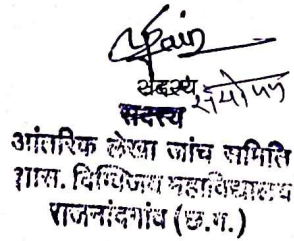 Jain
सदस्य संयोजक
सदस्य
आंतरिक लेखा जांच समिति
शास. दिग्विजय महाविद्यालय
राजनांदगांव (छ.ग.)